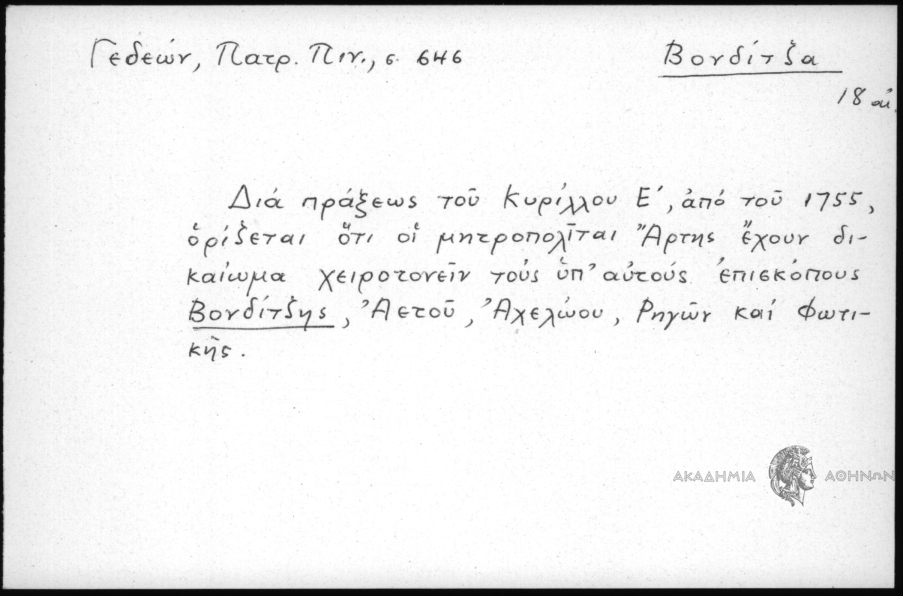 Γεδεών, Πατρ. Πιν., σ. 646
Βονδίτζα
18 αἰ.
Διά πράξεως τοῦ Κυρίλλου Ε΄, ἀπό τοῦ 1755,
ὁρίζεται ὅτι οἱ μητροπολῖται Ἄρτης ἔχουν δι-
καίωμα χειροτονεῖν τούς ὑπ' αὐτούς ἐπισκόπους
Βονδίτζης, Ἀετοῦ, Ἀχελώου, Ρηγῶν καί Φωτι-
κῆς.
ΑΚΑΔΗΜΙΑ ΑΘΗΝΩΝ